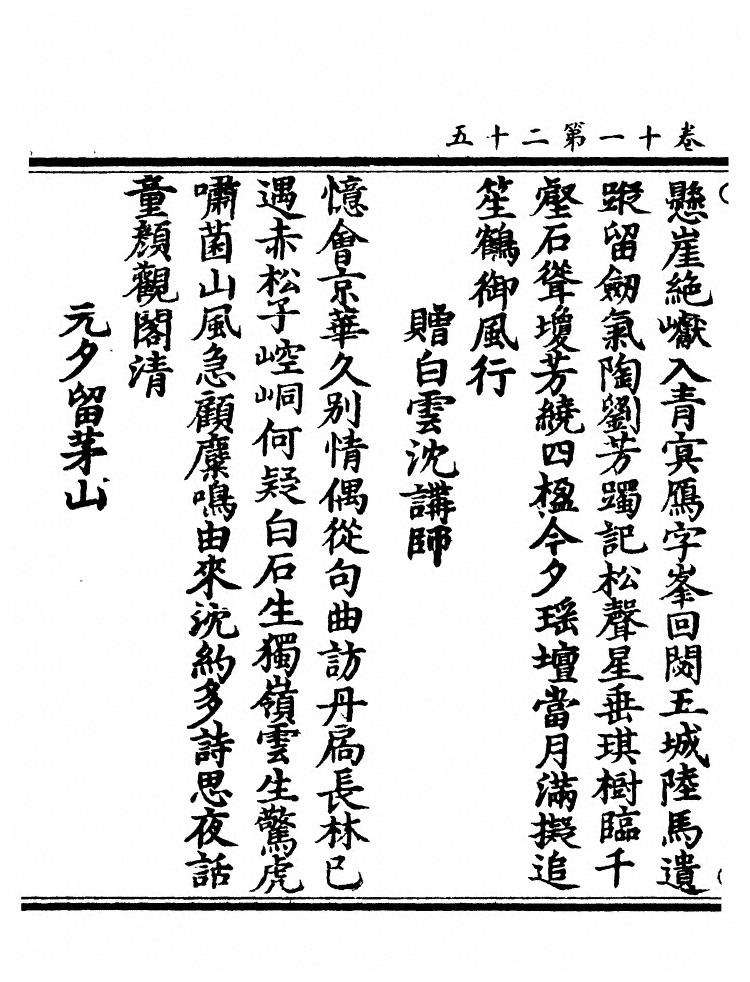 卷十一第二十五
懸崖絶巘入青冥鴈字峯回閟五城陸馬遺
蹤留劒氣陶劉芳躅記松聲星垂琪樹臨千
壑石聳瓊芳繞四楹今夕瑶壇當月滿擬追
笙鶴御風行
贈白雲沈講師
憶會京華久别情偶從句曲訪丹扃長林已
遇赤松子崆峒何疑白石生獨嶺雲生驚虎
嘯菌山風急顧麋鳴由來沈約多詩思夜話
童顔觀閣清
元夕留茅山